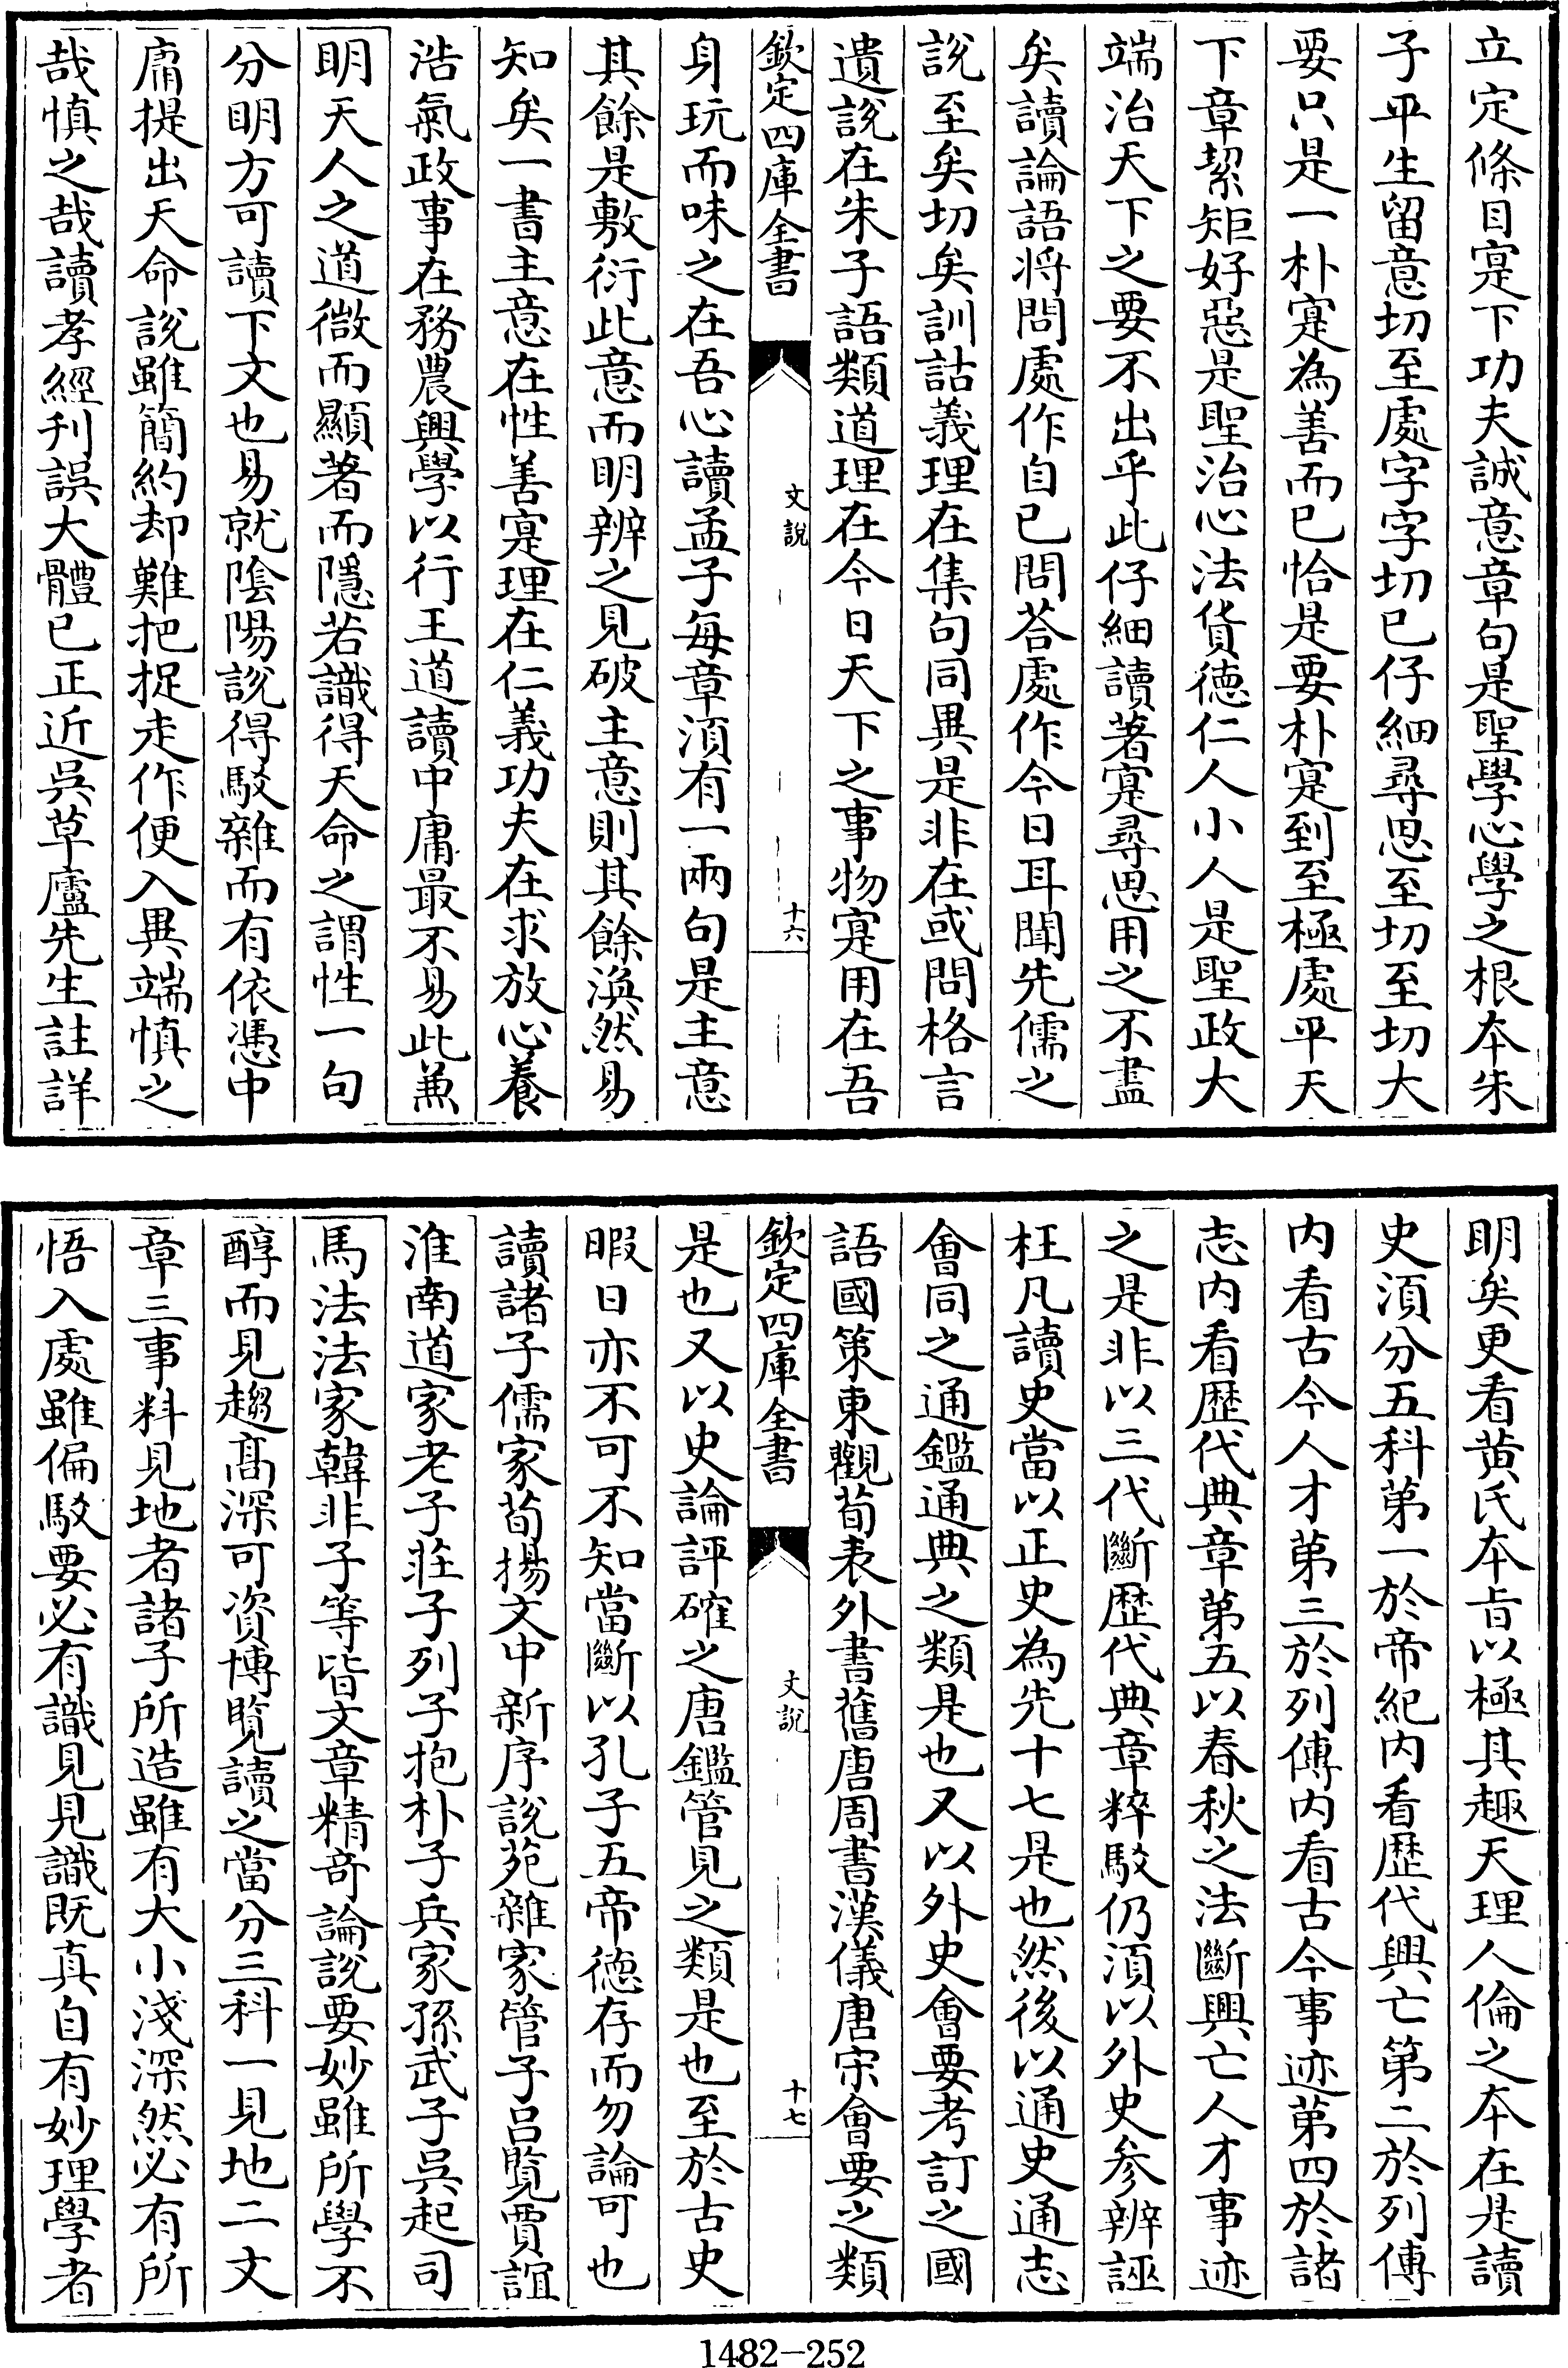 立定條目寔下功夫誠意章句是聖學心學之根本朱
子平生留意切至處字字切已仔細尋思至切至切大
要只是一朴寔為善而已恰是要朴寔到至極處平天
下章絜矩好惡是聖治心法貨徳仁人小人是聖政大
端治天下之要不出乎此仔細讀著寔尋思用之不盡
矣讀論語將問處作自已問荅處作今日耳聞先儒之
說至矣切矣訓詁義理在集句同異是非在或問格言
遺說在朱子語類道理在今日天下之事物寔用在吾
欽定四庫全書
文說
十六
身玩而味之在吾心讀孟子每章湏有一兩句是主意
其餘是敷衍此意而明辨之見破主意則其餘渙然易
知矣一書主意在性善寔理在仁義功夫在求放心養
浩氣政事在務農興學以行王道讀中庸最不易此兼
明天人之道微而顯著而隱若識得天命之謂性一句
分明方可讀下文也易就陰陽說得駁雜而有依憑中
庸提出天命說雖簡約却難把捉走作便入異端慎之
哉慎之哉讀孝經刋誤大體已正近吳草廬先生註詳
明矣更看黄氏本㫖以極其趣天理人倫之本在是讀
史湏分五科第一於帝紀内看歴代興亡第二於列傳
内看古今人才第三於列傳内看古今事迹第四於諸
志内看歴代典章第五以春秋之法斷興亡人才事迹
之是非以三代斷歴代典章粹駁仍湏以外史參辨誣
枉凡讀史當以正史為先十七是也然後以通史通志
會同之通鑑通典之類是也又以外史會要考訂之國
語國策東觀荀表外書舊唐周書漢儀唐宋會要之類
欽定四庫全書
文說
十七
是也又以史論評確之唐鑑管見之類是也至於古史
暇日亦不可不知當斷以孔子五帝徳存而勿論可也
讀諸子儒家荀揚文中新序說苑雜家管子呂覽賈誼
淮南道家老子莊子列子抱朴子兵家孫武子吳起司
馬法法家韓非子等皆文章精竒論說要妙雖所學不
醇而見趨髙深可資博覽讀之當分三科一見地二文
章三事料見地者諸子所造雖有大小淺深然必有所
悟入處雖偏駁要必有識見見識既真自有妙理學者
1482-252